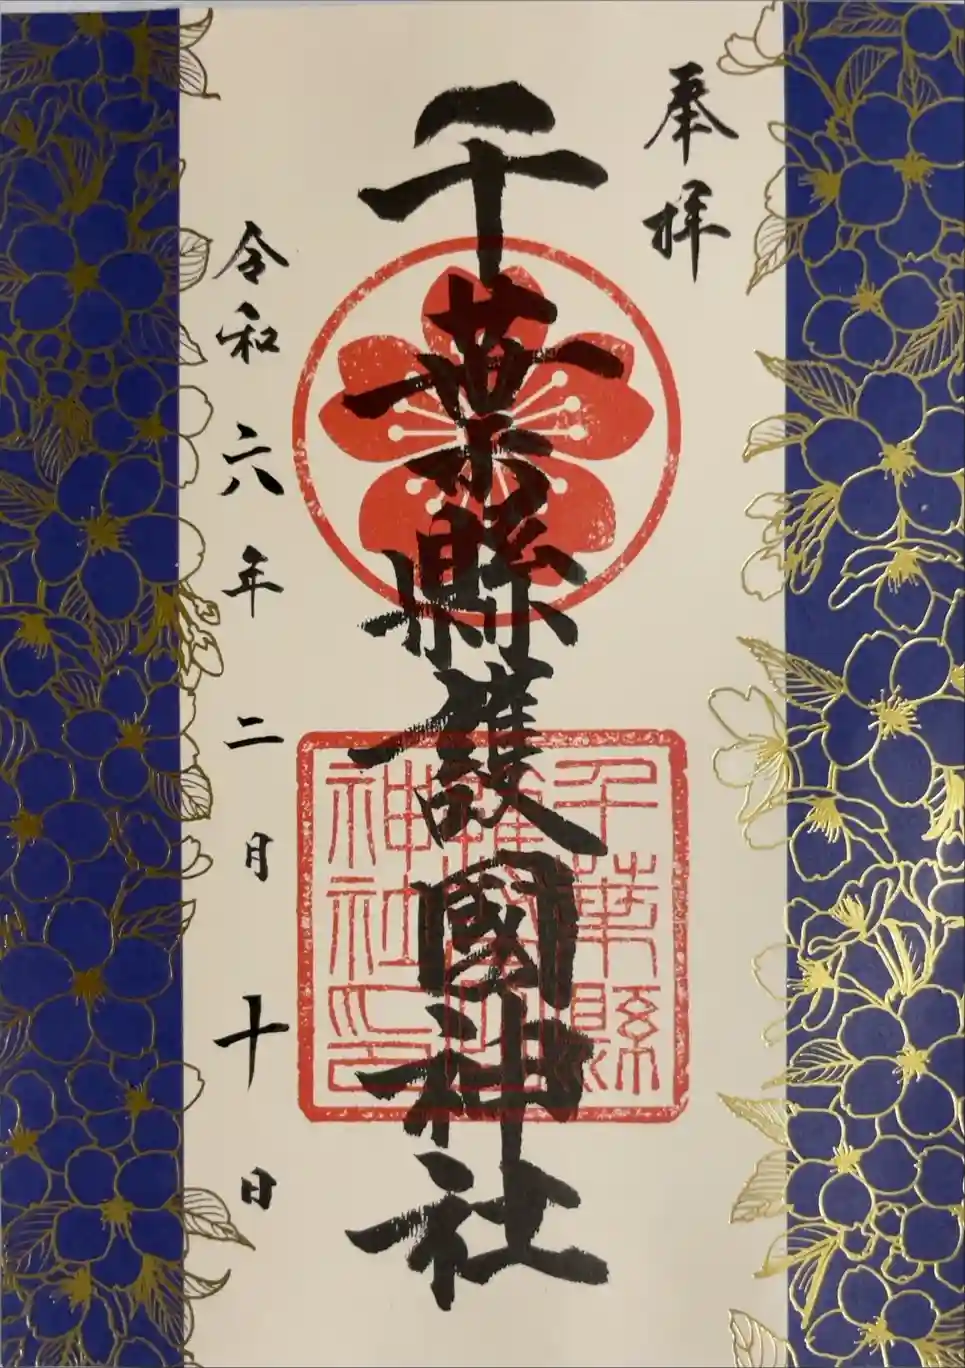 奉拝
千葉縣護國神社
千葉縣
護國
神社印
令和六年二月十日